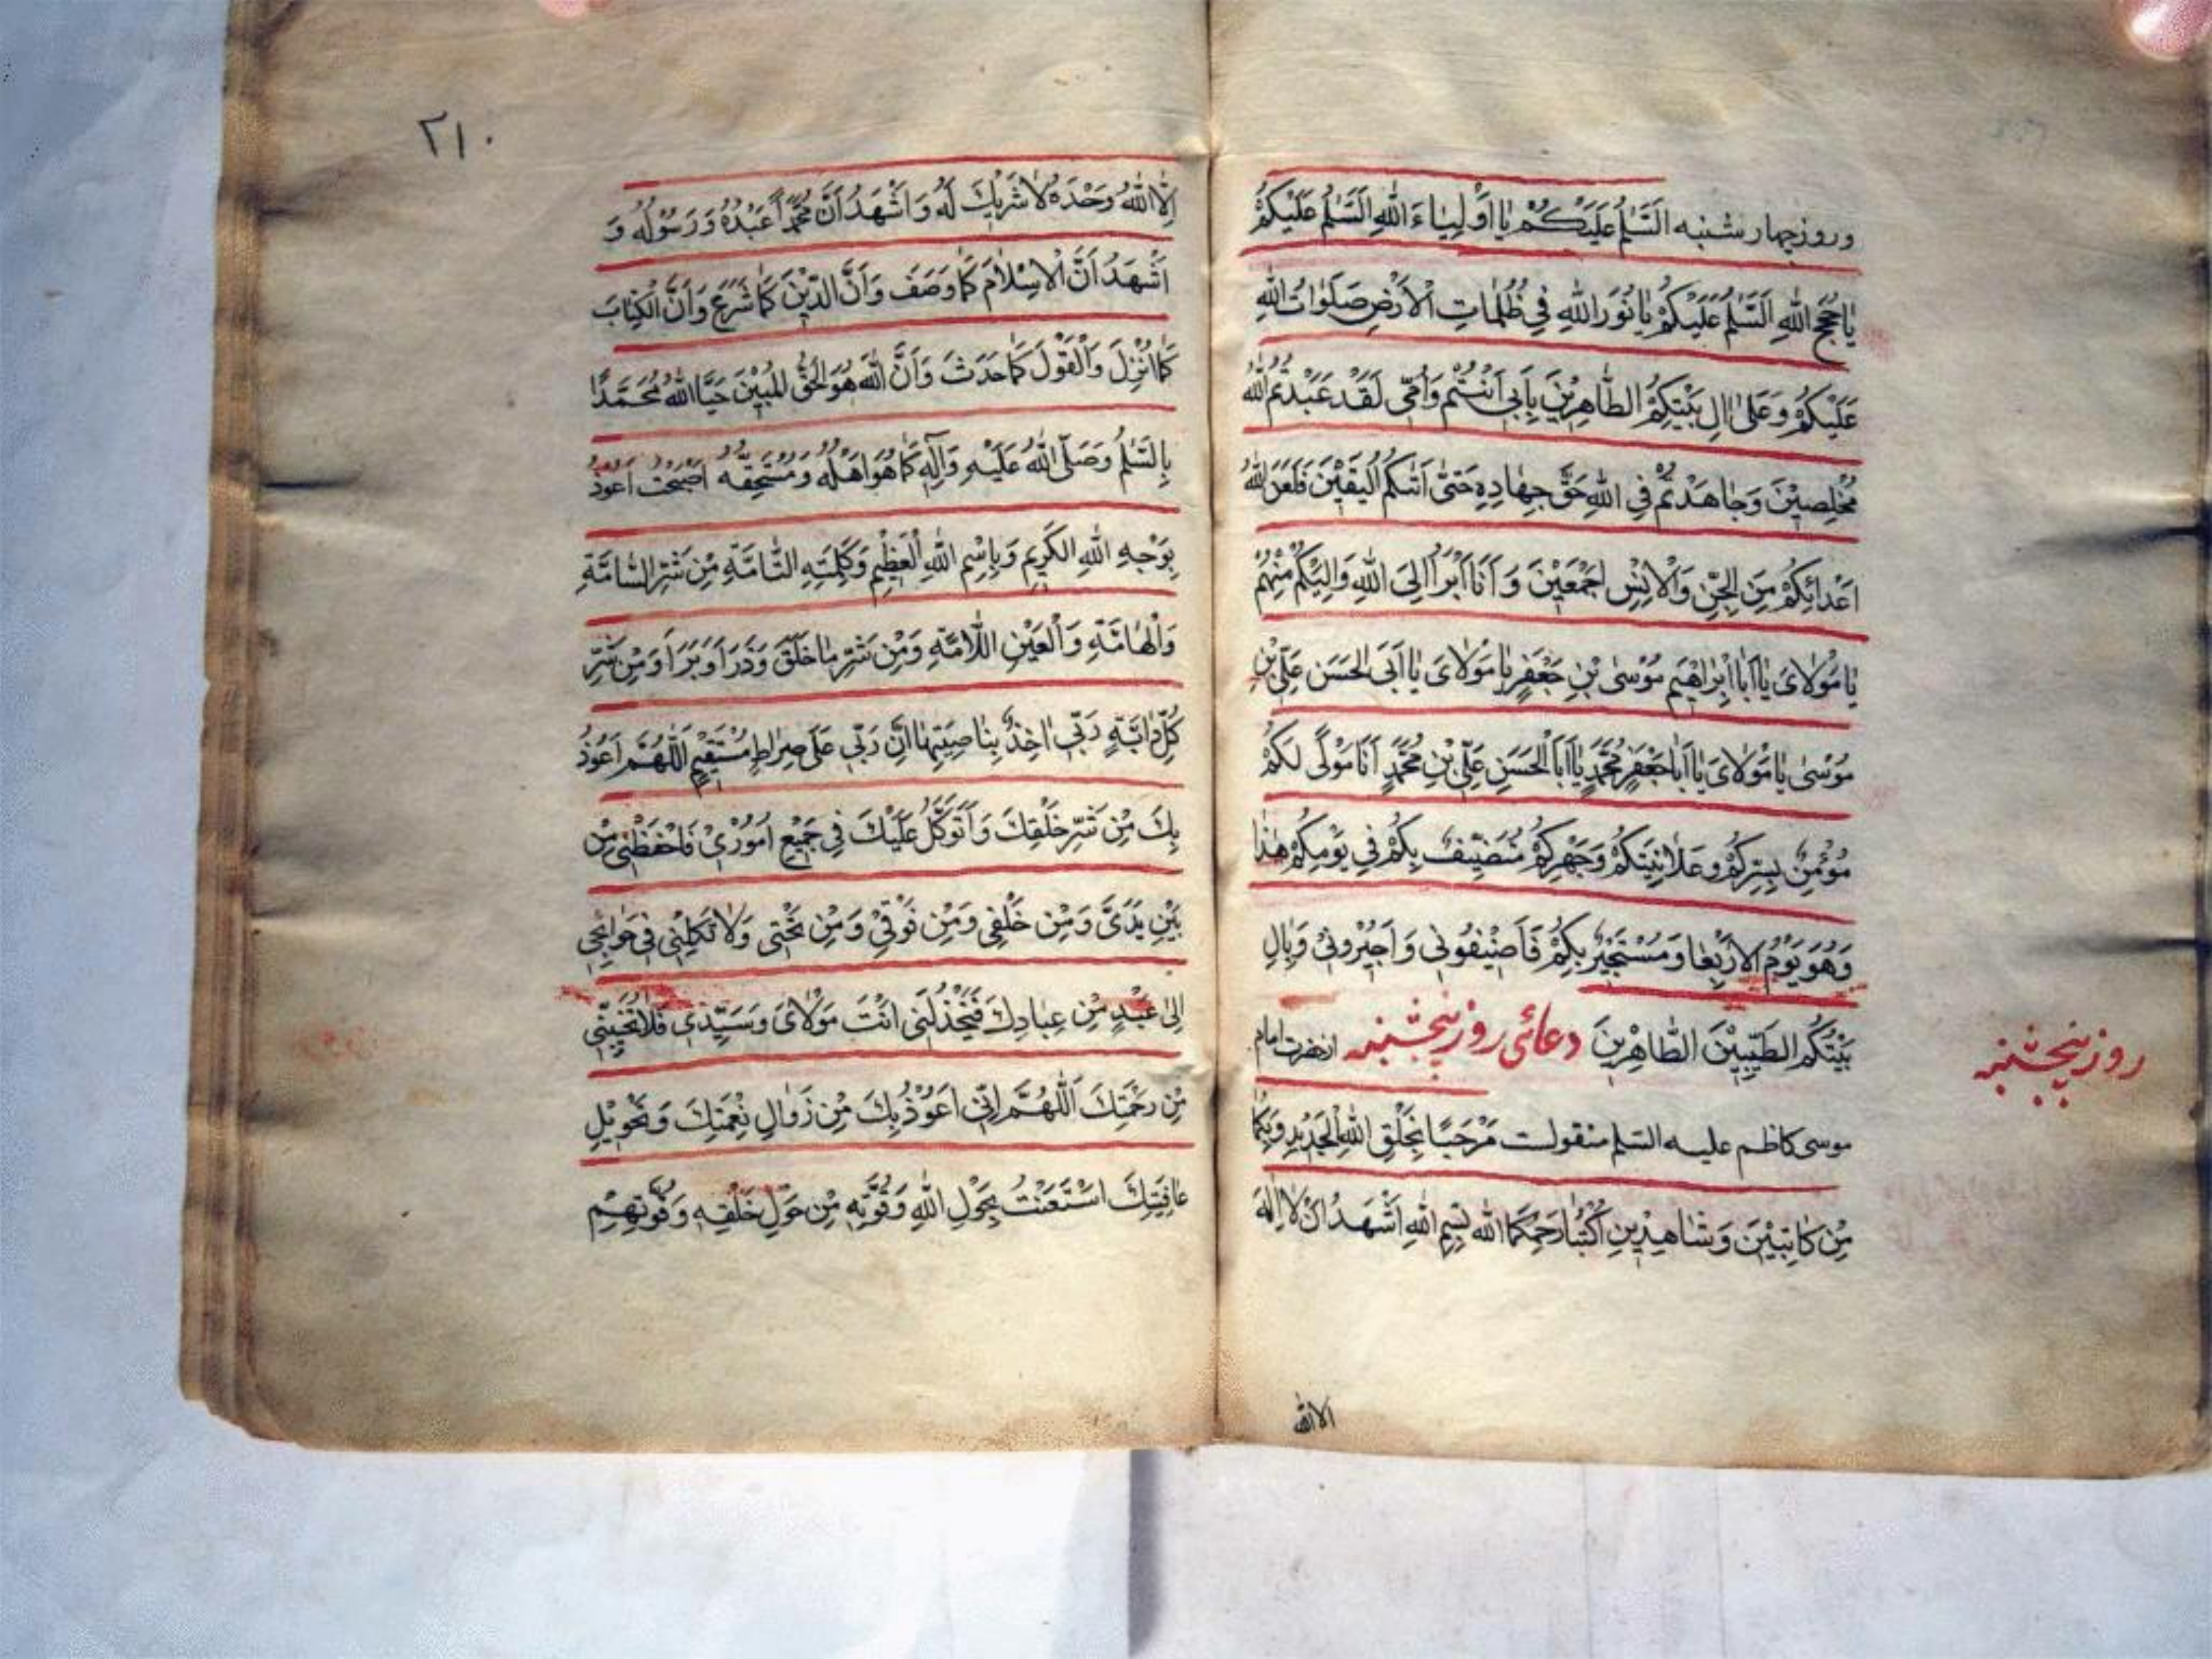 وروز چهار شنبه اَلسَّلٰمُ عَلَيْكُمْ يٰا اَوْلِيٰاءَ اللهِ اَلسَّلٰمُ عَلَيْكُمْ
يٰا حُجَجَ اللهِ اَلسَّلٰمُ عَلَيْكُمْ يٰا نُورَ اللهِ فِي ظُلُمٰاتِ الْاَرْضِ صَلَوٰاتُ اللهِ
عَلَيْكُمْ وَعَلىٰ اٰلِ بَيْتِكُمُ الطّٰاهِرِيْنَ بِاَبِي اَنْتُمْ وَاُمّى لَقَدْ عَبَدْتُمُ اللهَ
مُخْلِصِيْنَ وَجٰاهَدْتُمْ فِي اللهِ حَقَّ جِهٰادِهِ حَتّىٰ اَتٰىكُمُ الْيَقِيْنَ فَلَعَنَ اللهُ
اَعْدٰائَكُمْ مِنَ الْجِنِّ وَالْاِنْسِ اَجْمَعِيْنَ وَ اَنَا اَبْرَاُ اِلَى اللهِ وَاِلَيْكُمْ مِنْهُمْ
يٰا مَوْلٰاىَ يٰا اَبٰا اِبْرٰاهِيْمَ مُوْسىٰ بْنِ جَعْفَرٍ يٰا مَوْلٰاىَ يٰا اَبَى الْحَسَنِ عَلِيَّ بْنِ
مُوْسىٰ يٰا مَوْلٰاىَ يٰا اَبٰا جَعْفَرٍ مُحَمَّدٍ يٰا اَبَا الْحَسَنِ عَلِيِّ بْنِ مُحَمَّدٍ اَنَا مَوْلًى لَكُمْ
مُوْمِنٌ بِسِرِّكُمْ وَعَلٰانِيَتِكُمْ وَجَهْرِكُمْ مُتَضَيِّفٌ بِكُمْ فِي يَوْمِكُمْ هٰذٰا
وَهُوَ يَوْمُ الْاَرْبِعٰا وَمُسْتَجِيْرٌ بِكُمْ فَاَضِيْفُونِي وَ اَجِيْرُونِيْ وَبِاٰلِ
بَيْتِكُمُ الطَّيِّبِيْنَ الطّٰاهِرِيْنَ دعائى روز پنجشنبه ازحضرت امام
روز پنجشنبه
موسى كاظم عليه السلم منقولست مَرْحَبًا بِخَلْقِ اللهِ الْجَدِيْدِ وَبِكُمٰا
مِنْ كٰاتِبَيْنَ وَشٰاهِدِيْنِ اُكْتُبٰا رَحِمَكُمَا الله بِسْمِ اللهِ اَشْهَدُ اَنْ لٰا اِلٰهَ
الا الله
۲۱۰
اِلَّا اللهُ وَحْدَهُ لٰا شَرِيْكَ لَهُ وَ اَشْهَدُ اَنَّ مُحَمَّدًا عَبْدُهُ وَ رَسُوْلُهُ وَ
اَشْهَدُ اَنَّ الْاِسْلٰامَ كَمٰا وَصَفَ وَاَنَّ الدِّيْنَ كَمٰا شَرَعَ وَاَنَّ الْكِتٰابَ
كَمٰا اَنْزَلَ وَالْقَوْلَ كَمٰا حَدَثَ وَاَنَّ اللهَ هُوَ الْحَقُّ الْمُبِيْنَ حَيَّا اللهُ مُحَمَّدًا
بِالسَّلٰمُ وَصَلَّى اللهُ عَلَيْهِ وَاٰلِهِ كَمٰا هُوَ اَهْلُهُ وَمُسْتَحِقُّهُ اَصْبَحْتُ اَعُوذُ
بِوَجْهِ اللهِ الْكَرِيْمِ وَبِاسْمِ اللهِ الْعَظِيْمِ وَكَلِمَتِهِ التّٰامَّةِ مِنْ شَرِّ السّٰامَّةِ
وَالْهٰامَّةِ وَالْعَيْنِ اللّٰامَّةِ وَمِنْ شَرِّ مٰا خَلَقَ وَذَرَاَ وَبَرَاَ وَمِنْ شَرِّ
كُلِّ دٰابَّةٍ رَبِّي اٰخِذٌ بِنٰاصِيَتِهٰا اِنَّ رَبِّي عَلىٰ صِرٰاطٍ مُسْتَقِيْمٍ اَللّٰهُمَّ اَعُوذُ
بِكَ مِنْ شَرِّ خَلْقِكَ وَاَتَوَكَّلُ عَلَيْكَ فِي جَمِيْعِ اُمُوْرِيْ فَاحْفَظْنِي مِنْ
بَيْنِ يَدَىَّ وَمِنْ خَلْفِي وَمِنْ فَوْقِيْ وَمِنْ تَحْتِى وَلٰا تَكِلْنِى فِى حَوٰائِجِي
اِلىٰ عَبْدٍ مِنْ عِبٰادِكَ فَيَخْذُلَنِى اَنْتَ مَوْلٰاىَ وَسَيِّدِى فَلٰا تُخَيِّبْنِى
مِنْ رَحْمَتِكَ اَللّٰهُمَّ اِنّى اَعُوْذُ بِكَ مِنْ زَوٰالِ نِعْمَتِكَ وَتَحْوِيْلِ
عٰافِيَتِكَ اسْتَعَنْتُ بِحَوْلِ اللهِ وَقُوَّتِهِ مِنْ حَوْلِ خَلْقِهِ وَقُوَّتِهِمْ